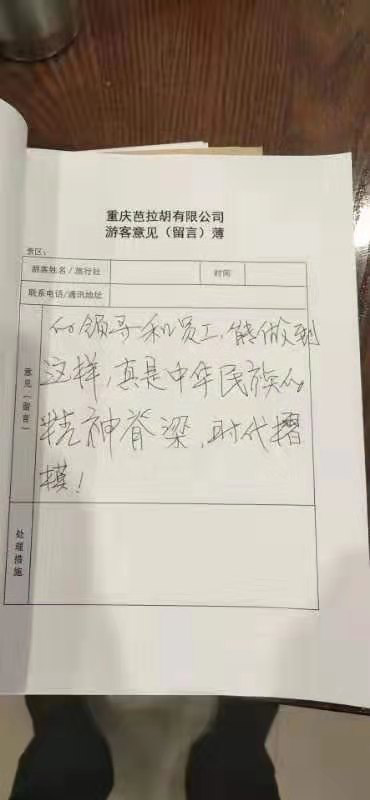 重庆芭拉胡有限公司
游客意见（留言）薄
景区：
游客姓名/旅行社
时间
联系电话/通讯地址
意见（留言）
的领导和员工，能做到
这样，真是中华民族的
精神脊梁，时代楷
模！
处理措施